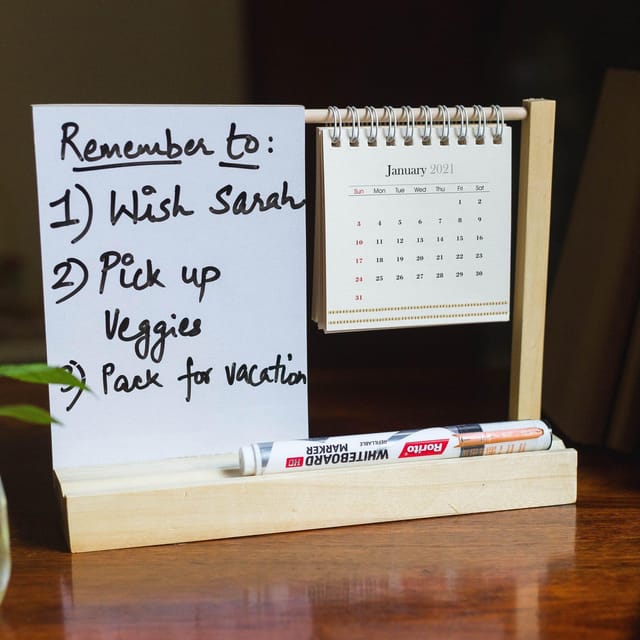 Remember to:
1) Wish Sarah
2) Pick up
Veggies
3) Pack for vacation
January 2021
Sun Mon Tue Wed Thu Fri Sat
1 2
3 4 5 6 7 8 9
10 11 12 13 14 15 16
17 18 19 20 21 22 23
24 25 26 27 28 29 30
31
Rorito
REFILLABLE
WHITEBOARD
MARKER